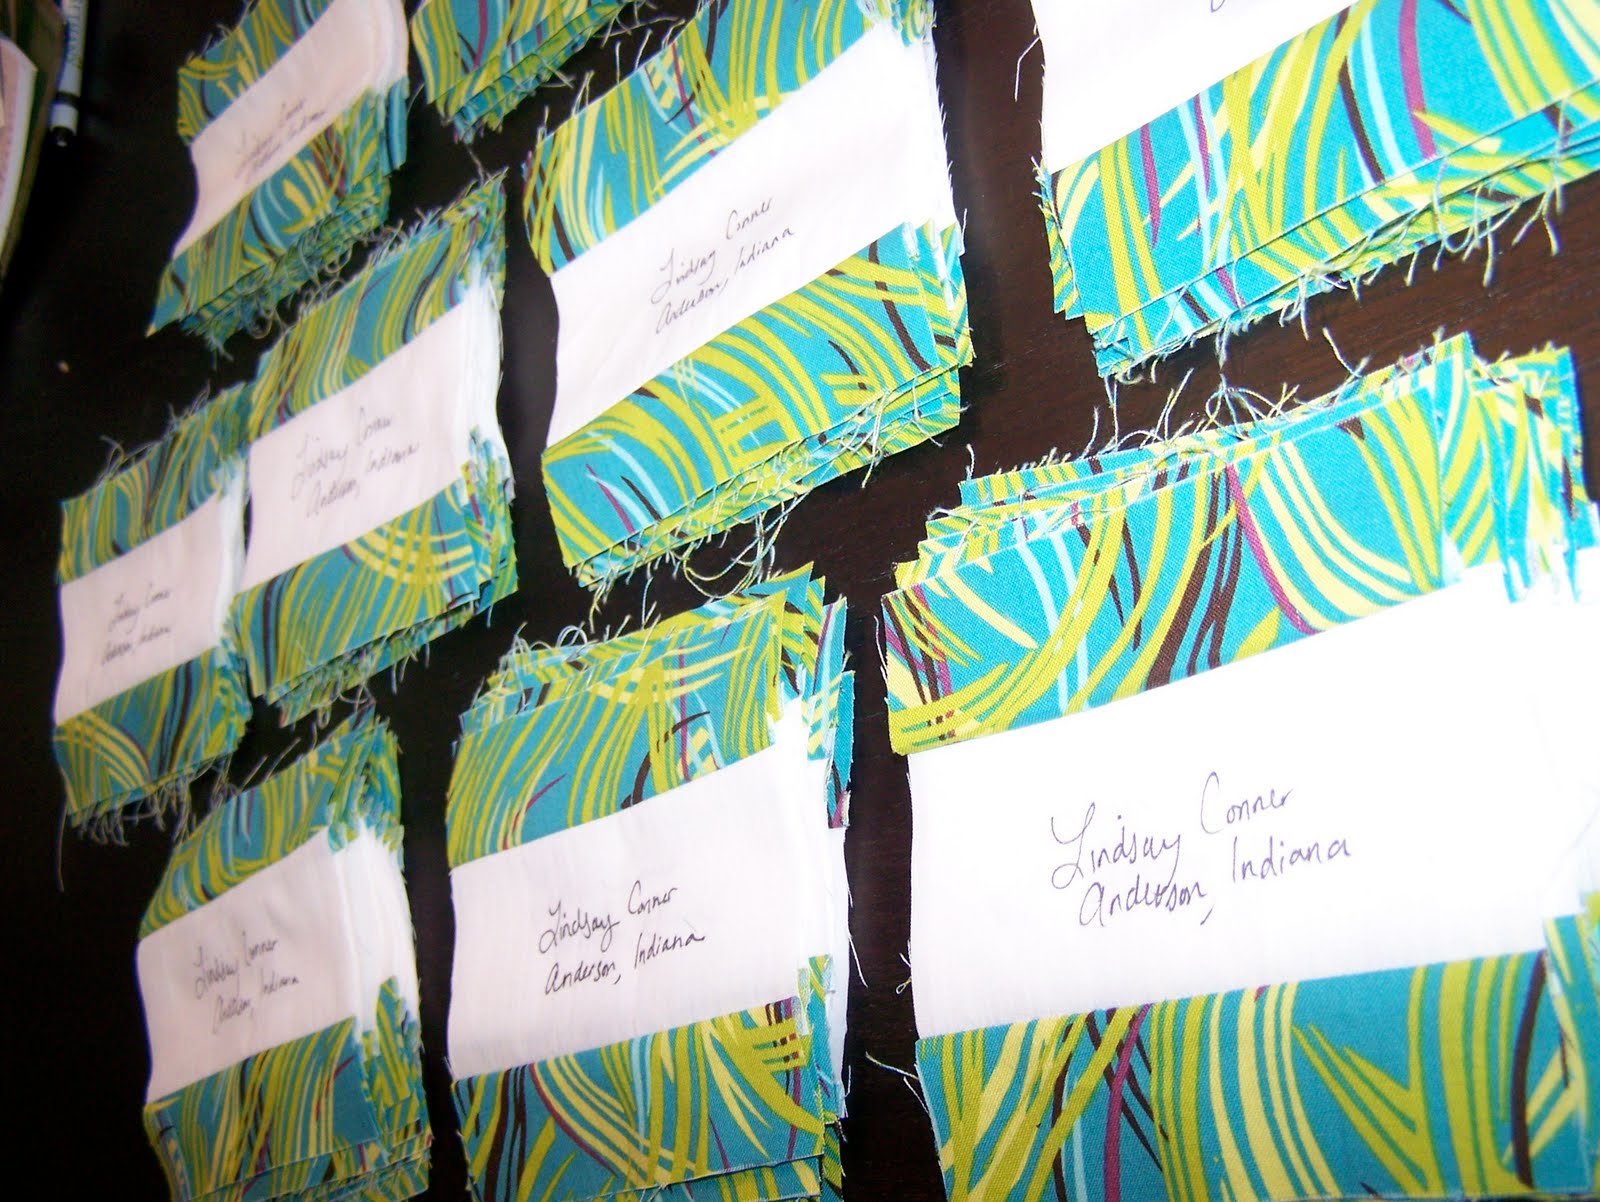 Lindsay Conner
Anderson, Indiana
Lindsay Conner
Anderson, Indiana
Lindsay Conner
Anderson, Indiana
Lindsay Conner
Anderson, Indiana
Lindsay Conner
Anderson, Indiana
Lindsay Conner
Anderson, Indiana
Lindsay Conner
Anderson, Indiana